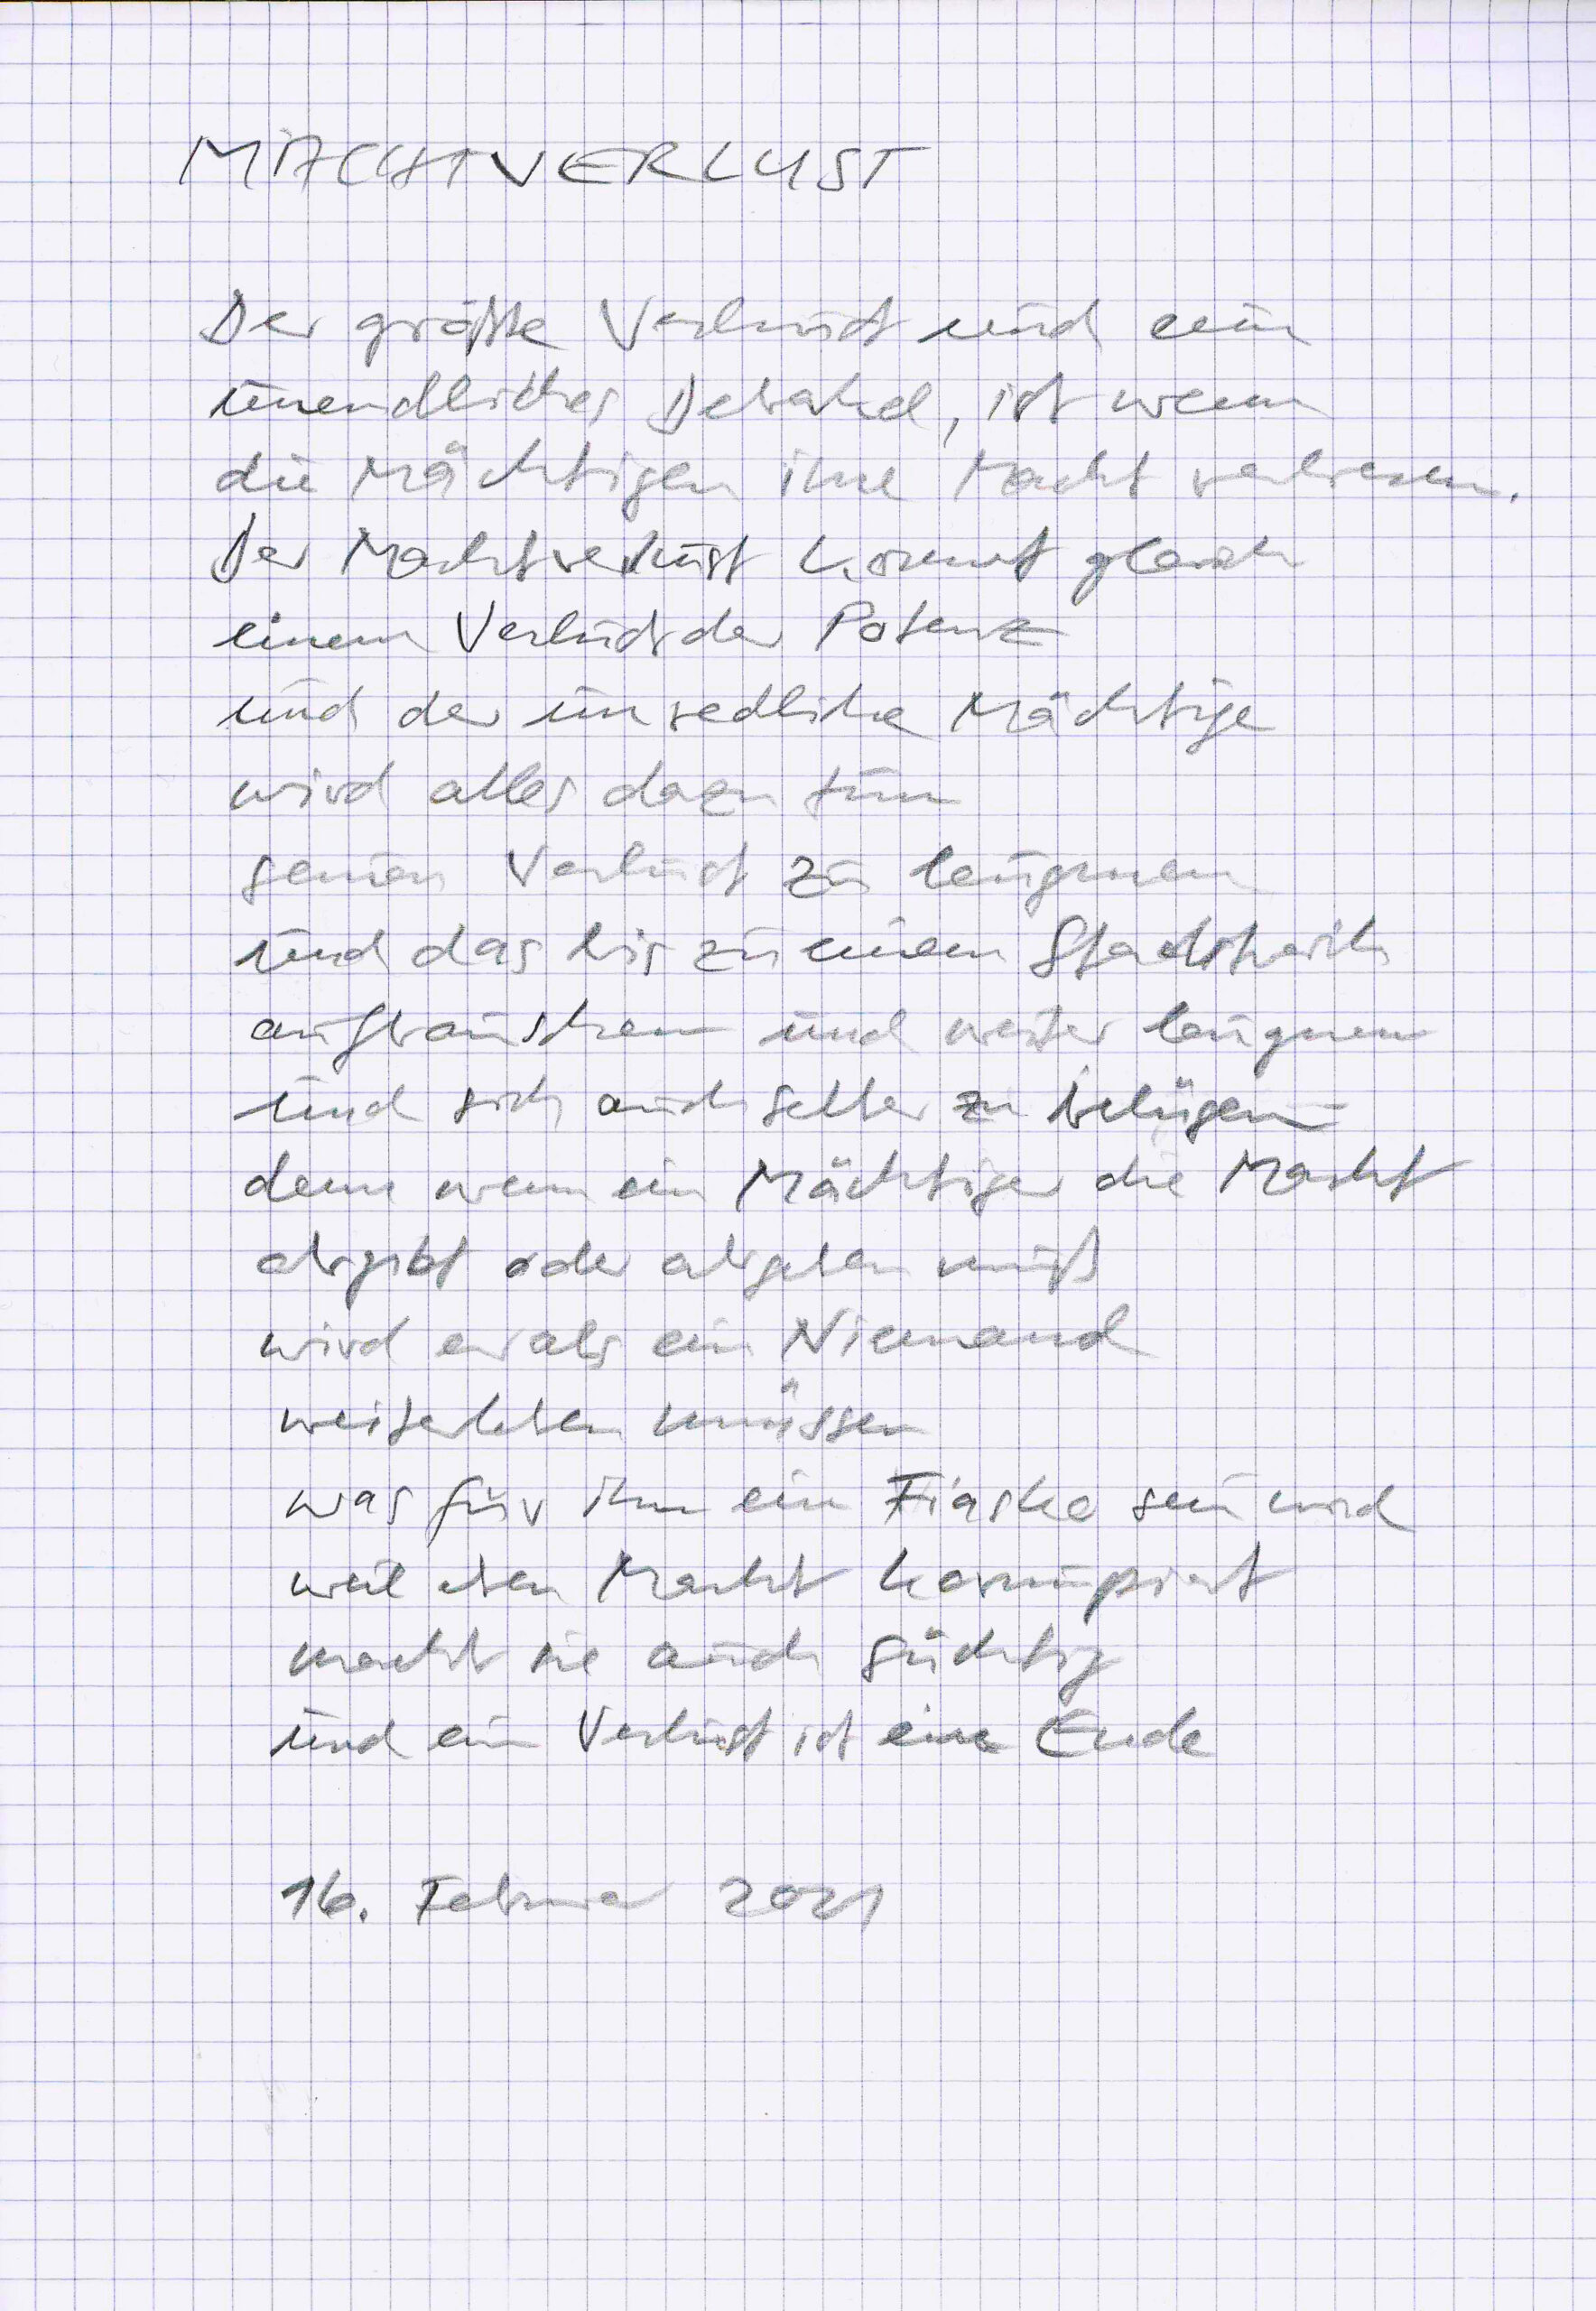 MACHTVERLUST
Der größte Verlust und ein
unendliches Debakel, ist wenn
die Mächtigen ihre Macht verlieren.
Der Machtverlust kommt gleich
einem Verlust der Potenz
und der unredliche Mächtige
wird alles dazu tun
seinen Verlust zu leugnen
und das bis zu einem Staatsstreich
aufbauschen und weiter leugnen
und sich auch selber zu belügen
denn wenn ein Mächtiger die Macht
abgibt oder abgeben muß
wird er als ein Niemand
weiterleben müssen
was für ihn ein Fiasko sein wird
weil eben Macht korrumpiert
macht sie auch süchtig
und ein Verlust ist eine Ende
16. Februar 2021